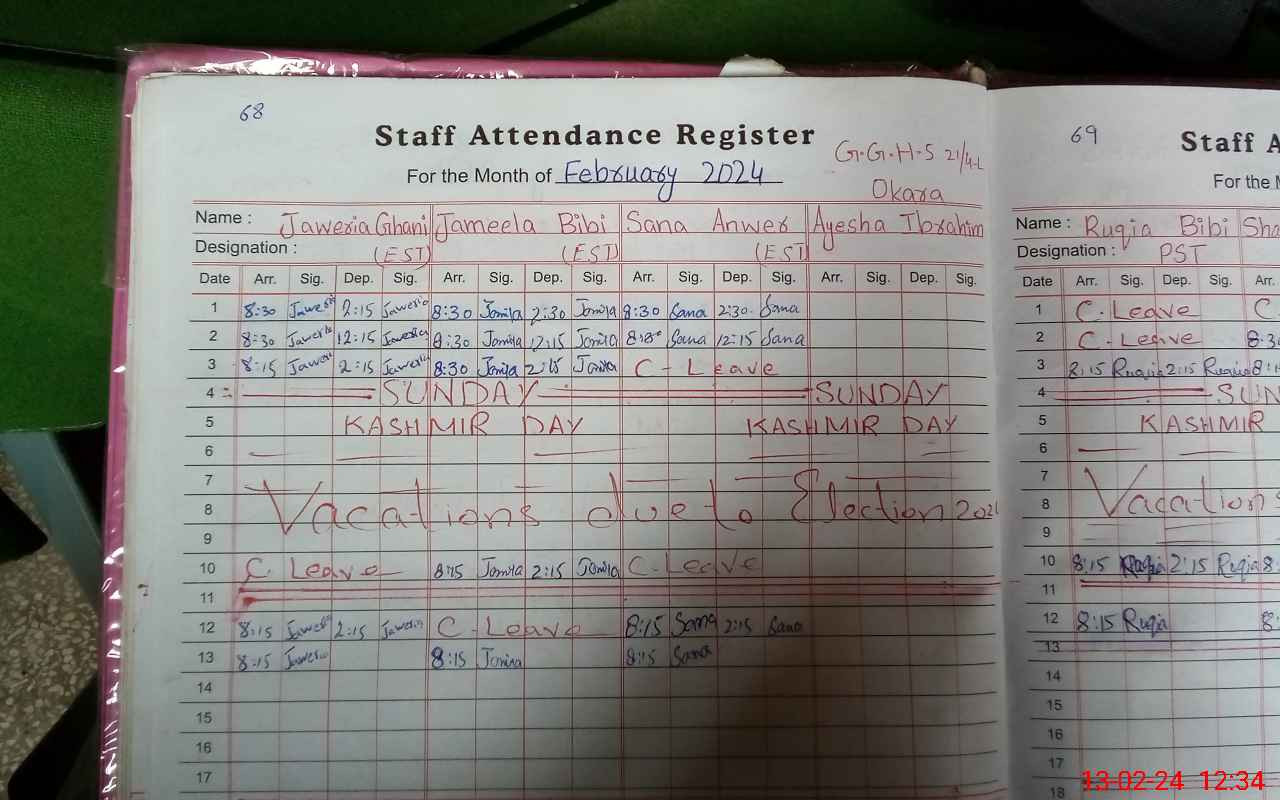 68
Staff Attendance Register
G.G.H.S 21/4-L
For the Month of February 2024
Okara
Name : Jaweria Ghani Jameela Bibi Sana Anwer Ayesha Ibrahim
Designation : (EST) (EST) (EST)
Date Arr. Sig. Dep. Sig. Arr. Sig. Dep. Sig. Arr. Sig. Dep. Sig. Arr. Sig. Dep. Sig.
1 8:30 Jaweria 2:15 Jaweria 8:30 Jamila 2:30 Jamila 8:30 Sana 2:30 Sana
2 8:30 Jaweria 12:15 Jaweria 8:30 Jamila 12:15 Jamila Sana 12:15 Sana
3 8:15 Jaweria 2:15 Jaweria 8:30 Jamila 2:15 Jamila C - Leave
4 SUNDAY SUNDAY
5 KASHMIR DAY KASHMIR DAY
6
7
8 Vacations due to Election 2024
9
10 C. Leave 8:15 Jamila 2:15 Jamila C - Leave
11
12 8:15 Jaweria 2:15 Jaweria C - Leave 8:15 Sana 2:15 Sana
13 8:15 Jaweria 8:15 Jamila 8:15 Sana
14
15
16
17
69
Staff A
For the M
Name : Ruqia Bibi Sha
Designation : PST
Date Arr. Sig. Dep. Sig. Arr.
1 C. Leave C.
2 C. Leave 8:3
3 8:15 Ruqia 2:15 Ruqia 8:1
4 SUN
5 KASHMIR
6
7
8 Vacations
9
10 8:15 Ruqia 2:15 Ruqia 8:
11
12 8:15 Ruqia 8:
13
14
15
16
17
18
13-02-24 12:34